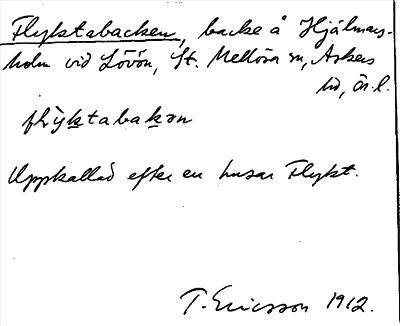 Flyktabacken, backe å Hjälmars-
holm vid Lövön, St. Mellösa sn, Askers
hd, Ör. l.
flỳktabakən
Uppkallad efter en husar Flykt.
T. Ericsson 1912.